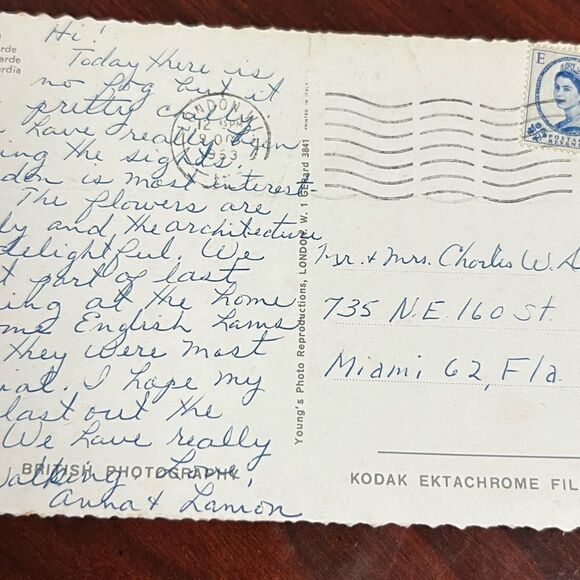 rde
arde
erdia
Hi!
Today there is
no fog but it
pretty chilly
have really been
ing the sights.
don is most interest
The flowers are
ly and the architecture
delightful. We
t part of last
ing at the home
ome English Hams
they were most
ial. I hope my
last out the
We have really
walking. Love,
Anna & Lamon
BRITISH PHOTOGRAPHY
LONDON W.1
12 PM
9 OC
1963
PRINTED IN ITALY
Young's Photo Reproductions, LONDON. W. 1 GERrard 3841
E
POSTAGE
REVENUE
Mr. & Mrs. Charles W. A
735 N.E. 160 St.
Miami 62, Fla.
KODAK EKTACHROME FIL